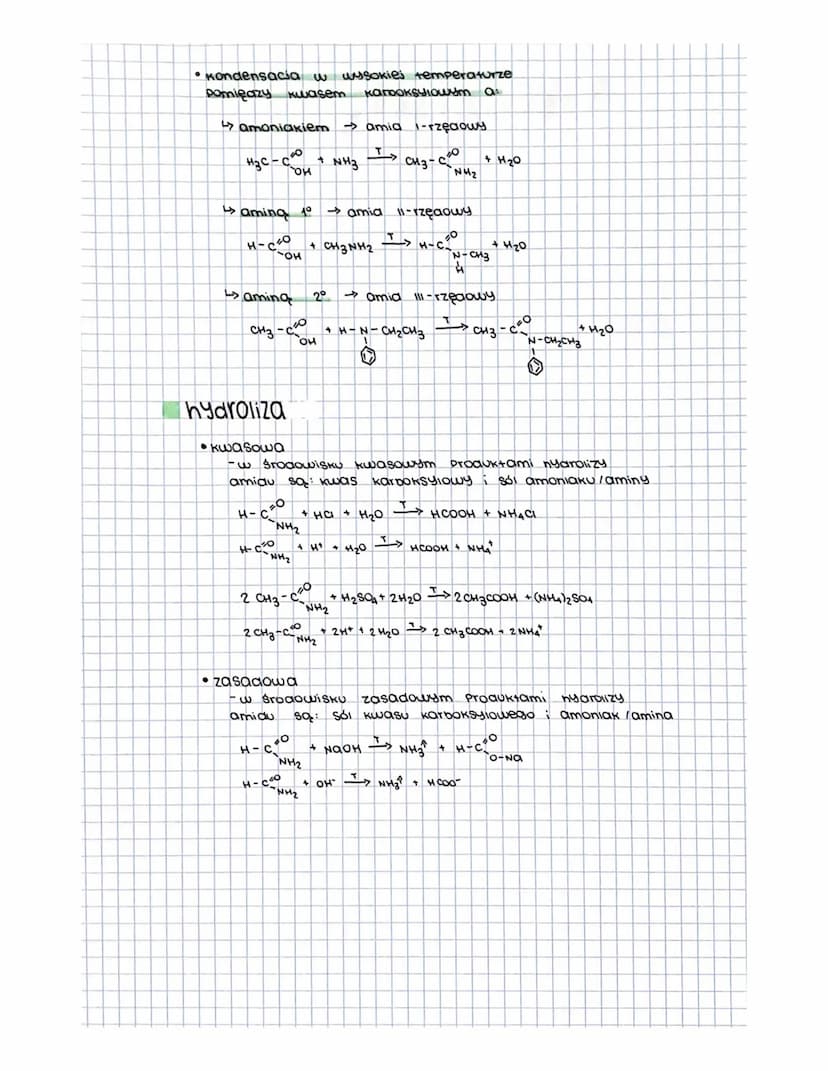 • kondensacja w wysokiej temperaturze
pomiędzy kwasem karboksylowym a:
↳ amoniakiem → amid I-rzędowy
H₃C-C(=O)OH + NH₃ –T→ CH₃-C(=O)NH₂ + H₂O
↳ aminą 1° → amid II-rzędowy
H-C(=O)OH + CH₃NH₂ –T→ H-C(=O)N(H)-CH₃ + H₂O
↳ aminą 2° → amid III-rzędowy
CH₃-C(=O)OH + H-N-CH₂CH₃ –T→ CH₃-C(=O)N-CH₂CH₃ + H₂O
hydroliza
• kwasowa
-w środowisku kwasowym produktami hydrolizy
amidu są: kwas karboksylowy i sól amoniaku/aminy
H-C(=O)NH₂ + HCl + H₂O –T→ HCOOH + NH₄Cl
H-C(=O)NH₂ + H⁺ + H₂O –T→ HCOOH + NH₄⁺
2 CH₃-C(=O)NH₂ + H₂SO₄ + 2H₂O –T→ 2CH₃COOH + (NH₄)₂SO₄
2 CH₃-C(=O)NH₂ + 2H⁺ + 2H₂O –T→ 2 CH₃COOH + 2NH₄⁺
• zasadowa
-w środowisku zasadowym produktami hydrolizy
amidu są: sól kwasu karboksylowego i amoniak/amina
H-C(=O)NH₂ + NaOH –T→ NH₃↑ + H-C(=O)O-Na
H-C(=O)NH₂ + OH⁻ –T→ NH₃↑ + HCOO⁻